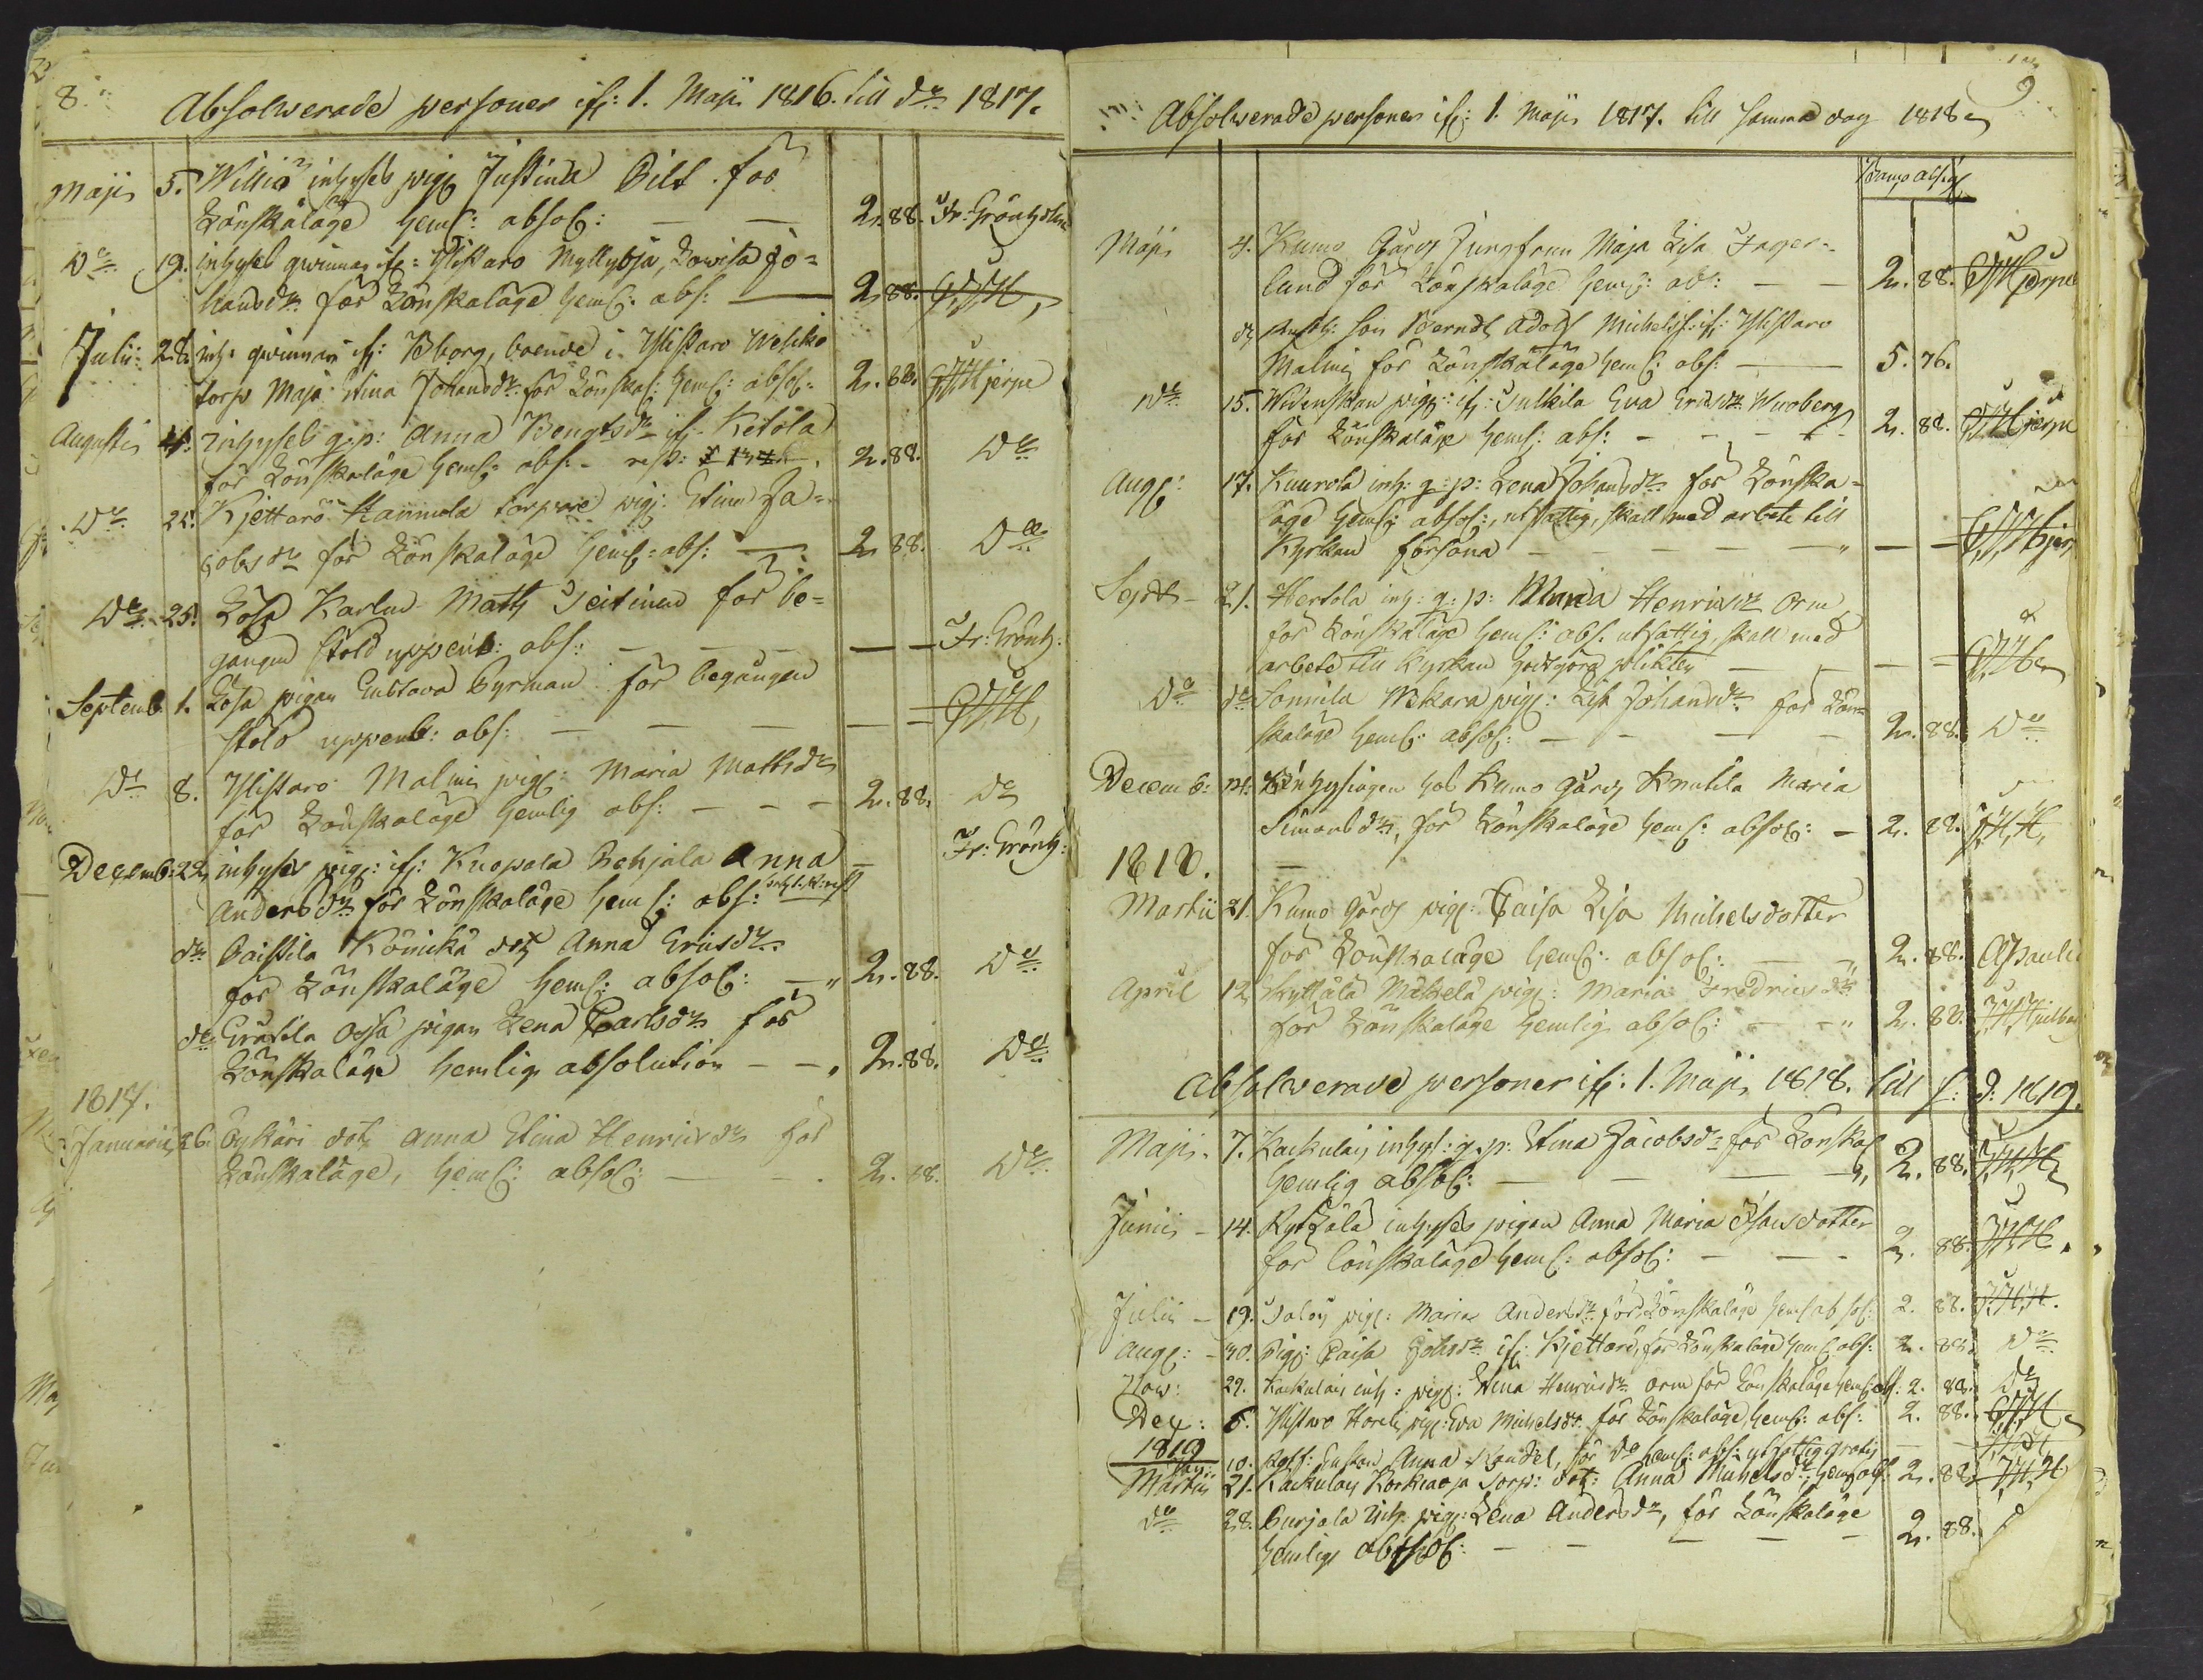 8.
Absolwerade personer ifr: 1. Maji 1816. till do 1817.
Maji 5. Willio inhyses pig: Justina Bilt. för
Lönskaläge heml: absol: — — 2. 88. Fr: Gröntz
Do 19. inhyses qwinnan ifr: Ylistaro Myllyoja, Lowisa Jo=
hansdr för Lönskaläge heml: abs: — 2. 88.
Julii: 28. inh: qwinnan ifr: Kborg, boende i Ylistaro
torp Maja Stina Johansdr för Lönskal: heml: absol: 2. 88. Hjerpe
Augusti 4. inhyses q: p: Anna Bengtsdr ifr: Ketola
för Lönskaläge heml: abs: 2. 88. Do
Do 25. Kjettarö Hannula torpare pig: Stina Ja=
cobsdr för Lönskaläge heml: abs: — 2 88. Do
Do 25. Lösa Karlen Matts Teitinen för be=
gången stöld uppenb: abs: — — — Fr: Gröntz:
Septemb. 1. Lösa pigan Gustava Byrman för begången
stöld uppenb: abs: — — —
Do 8. Ylistaro Malmi pig: Maria Mattsdr
för Lönskaläge hemlig abs: — — — 2. 88. Do
Decemb: 22, inhyses pig: ifr: Kuopala Behjala Anna Fr: Gröntz:
Andersdr för Lönskaläge heml: abs:
do Paistila Könickä dot Anna Ericsdr
för Lönskaläge heml: absol: — 2. 88. Do
do Gräsila Ossa pigan Lena Carlsdr för
Lönskaläge hemlig absolution — — 2. 88. Do
1817.
Januarii 26. Pykäri dot: Anna Stina Henricsdr för
Lönskaläge, heml: absol: — — 2. 88. Do
9
Absolwerade personer ifr: 1. Maji 1817. till samma dag 1818
Banco
Maji 4. Kumo Gårds Jungfrun Maja Lisa Fager=
lund för Lönskaläge heml: abs: — — 2. 88. Hjerpe
do son Berndt Adolf Michelss: ifr: Ylistaro
Malmi för Lönskaläge heml: abs: — 5. 76.
Do 15. pig: ifr: Sulkila Eva Ericsdr Wuoberg
för Lönskaläge heml: abs: — — 2. 88. Hjerpe
Aug: 17. Kuurola inh: q: p: Lena Johansdr för Lönska=
läge heml: absol:, utfattig, skall med arbete till
Kyrkan försona — — — — —
Sept 21. Hertola inh: q: p: Maria Henricsdr Orm
för Lönskaläge heml: abs. utfattig, skall med
arbete till Kyrkan godtgöra plikten — — —
Do do Sonnila Wekara pig: Lisa Johansdr för Lön=
skaläge heml: absol: — — — 2. 88. Do
Decemb: 14. Inhysingen hos Kumo Gårds Knutila Maria
Simonsdr, för Lönskaläge heml: absol: — 2. 88.
1818.
Martii 21. Kumo Gårds pig: Caisa Lisa Michelsdotter
för Lönskaläge heml: absol: — 2. 88.
April 12. Kyttälä Mäkelä pig: Maria Fredricsdr
för Lönskaläge hemlig absol: — 2. 88.
Absolwerade personer ifr: 1. Maji 1818. till s: d: 1819.
Maji. 7. Kackulais inhys: q. p: Stina Jacobsdr för Lönskal
hemlig absol: — — — 2. 88.
Junii – 14. inhyses pigan Anna Maria Esaisdotter
för Lönskaläge heml: absol: — — 2. 88.
Julii – 19. pig: Maria Andersdr för Lönskaläge heml absol: 2. 88.
Aug: – 30. Pig: Caisa ifr: Kjettarö, för Lönskaläge heml: abs: 2. 88. Do
Now: 29. Kackulais inh: pig: Stina Henricsdr Orm för Lönskaläge heml: abs: 2. 88. Do
Dec: 6. Ylistaro pig: Eva Michelsdr för Lönskaläge heml: abs: 2. 88.
1819
10. Anna för do heml: abs: utfattig gratis — —
Martii 21. Kackulais Korkiaoja Torp: dot: Anna Michelsdr heml abs: 2. 88.
do 28. Purjala Inh: pig: Lena Andersdr, för Lönskaläge
hemlig absol: — — — 2. 88.